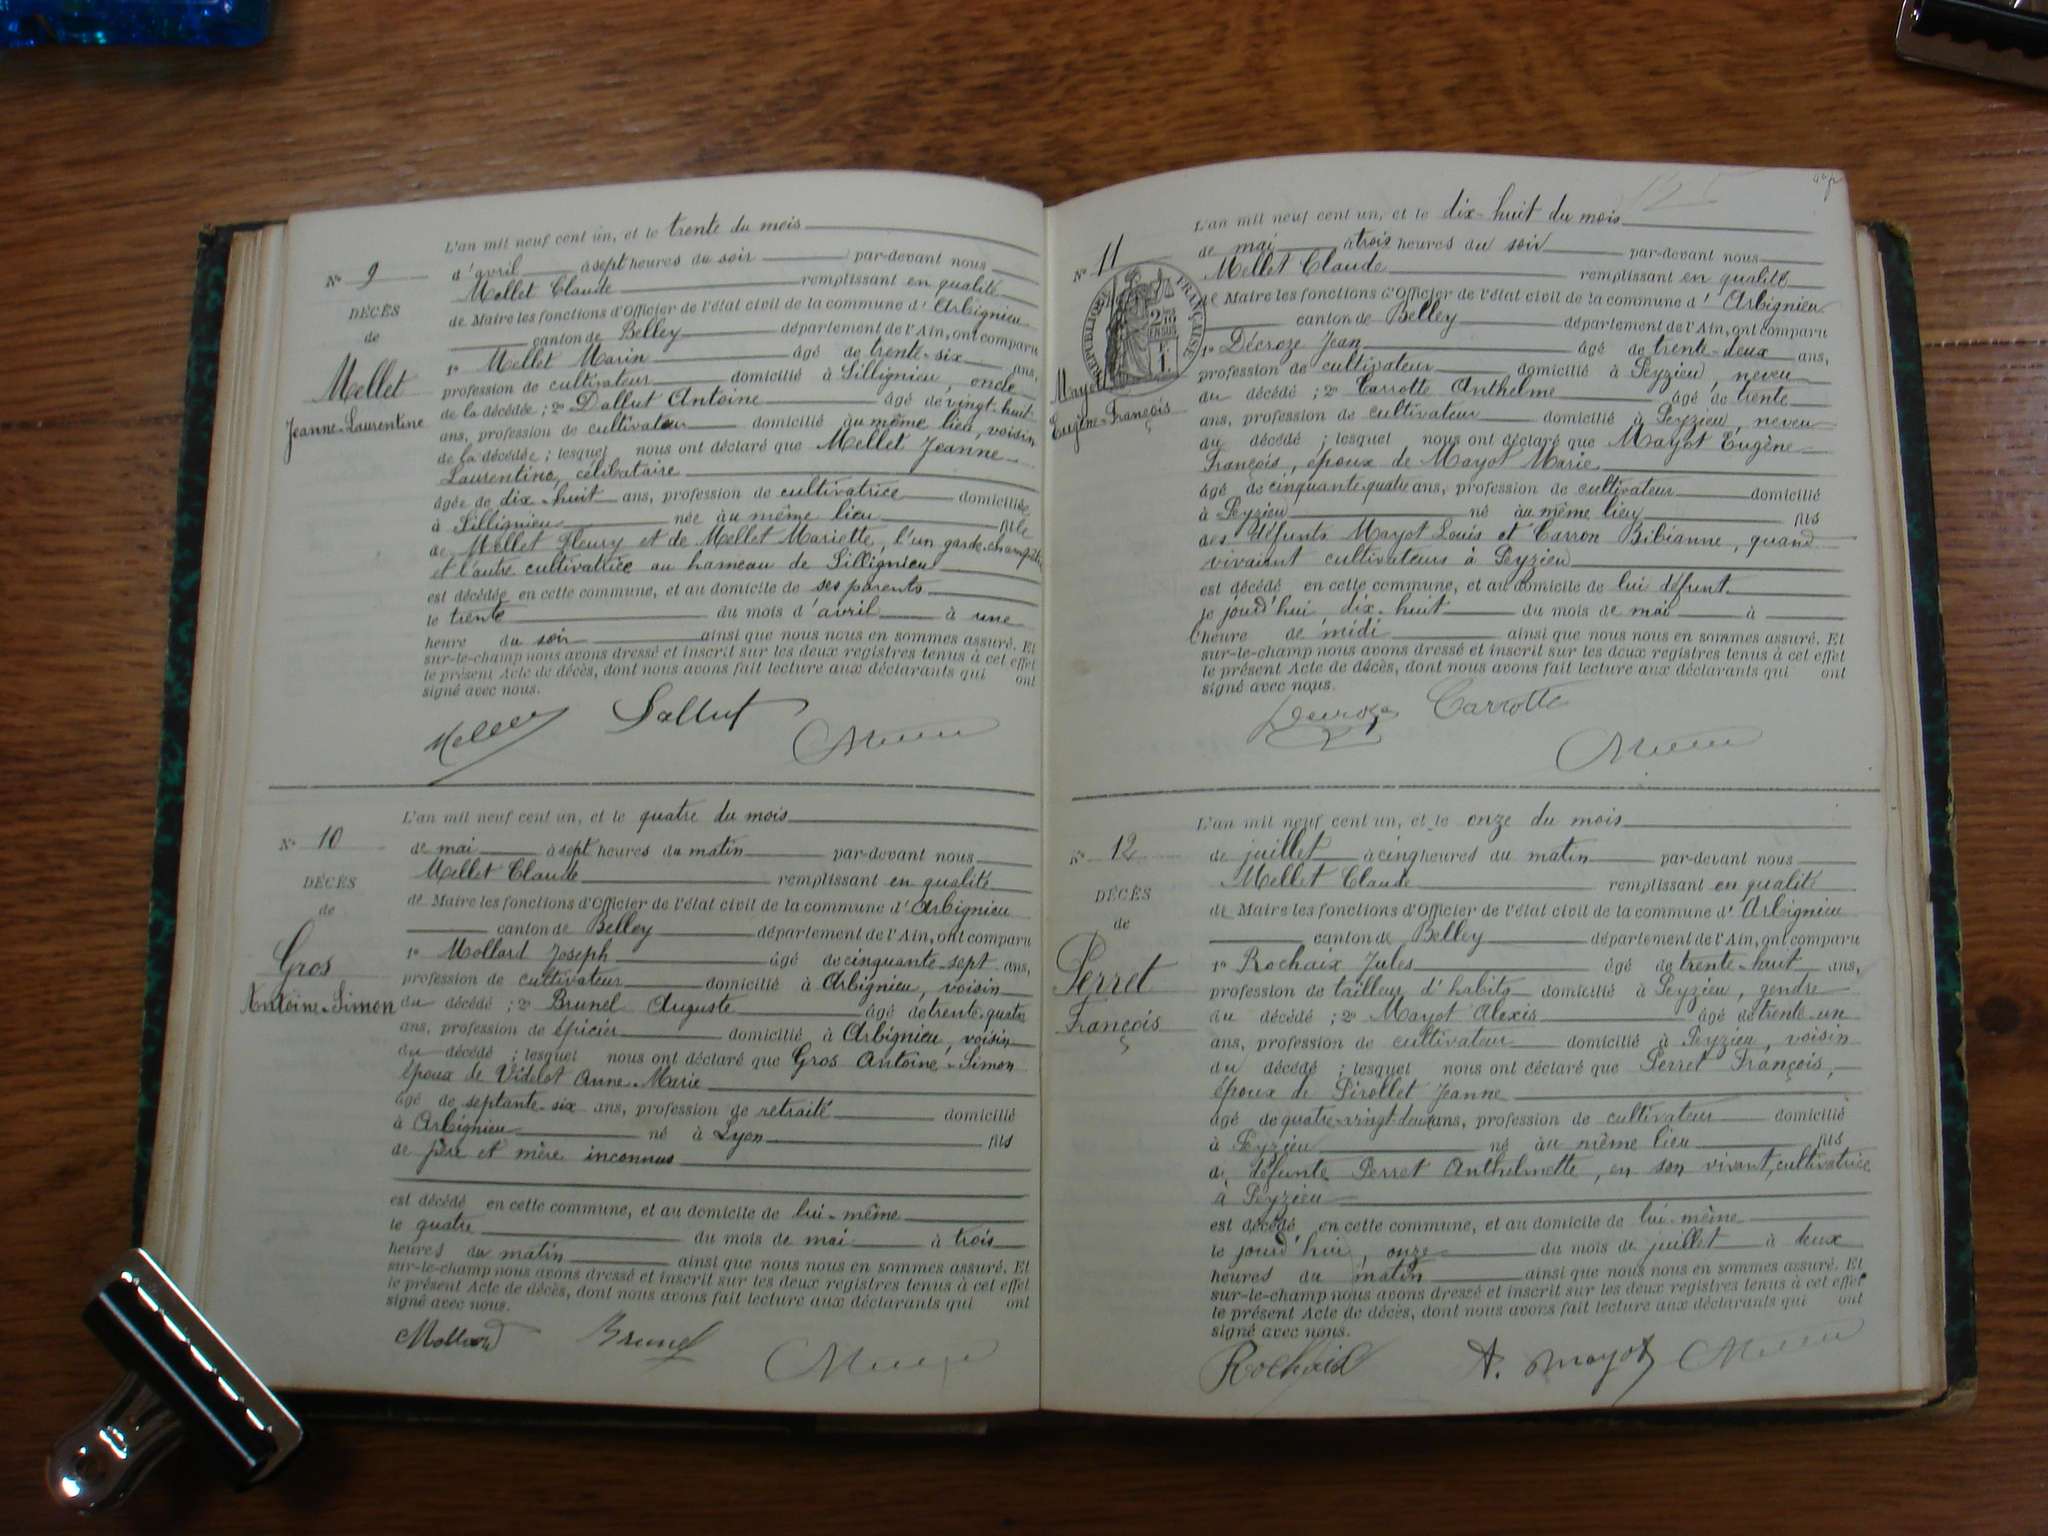 L'an mil neuf cent un, et le trente du mois
N° 9
d'avril à sept heures du soir par-devant nous
Mellet Claude remplissant en qualité
DÉCÈS
de Maire les fonctions d'Officier de l'état civil de la commune d'Arbignieu
de
canton de Belley département de l'Ain, ont comparu
1° Mellet Marin âgé de trente-six ans,
Mellet
profession de cultivateur domicilié à Sillignieu, oncle
de la décédée ; 2° Dallut Antoine âgé de vingt-huit
Jeanne-Laurentine
ans, profession de cultivateur domicilié au même lieu, voisin
de la décédée ; lesquel nous ont déclaré que Mellet Jeanne-
Laurentine, célibataire
âgée de dix-huit ans, profession de cultivatrice domiciliée
à Sillignieu née au même lieu fille
de Mellet Fleury et de Mellet Mariette, l'un garde-champêtre
et l'autre cultivatrice au hameau de Sillignieu
est décédée en cette commune, et au domicile de ses parents
le trente du mois d'avril à une
heure du soir ainsi que nous nous en sommes assuré. Et
sur-le-champ nous avons dressé et inscrit sur les deux registres tenus à cet effet
le présent Acte de décès, dont nous avons fait lecture aux déclarants qui ont
signé avec nous.
Mellet Dallut
L'an mil neuf cent un, et le quatre du mois
N° 10
de mai à sept heures du matin par-devant nous
Mellet Claude remplissant en qualité
DÉCÈS
de Maire les fonctions d'Officier de l'état civil de la commune d'Arbignieu
de
canton de Belley département de l'Ain, ont comparu
Gros
1° Mollard Joseph âgé de cinquante-sept ans,
profession de cultivateur domicilié à Arbignieu, voisin
Antoine-Simon
du décédé ; 2° Brunel Auguste âgé de trente-quatre
ans, profession de épicier domicilié à Arbignieu, voisin
du décédé ; lesquel nous ont déclaré que Gros Antoine-Simon
époux de Videlot Anne-Marie
âgé de septante-six ans, profession de retraité domicilié
à Arbignieu né à Lyon fils
de père et mère inconnus
est décédé en cette commune, et au domicile de lui-même
le quatre du mois de mai à trois
heures du matin ainsi que nous nous en sommes assuré. Et
sur-le-champ nous avons dressé et inscrit sur les deux registres tenus à cet effet
le présent Acte de décès, dont nous avons fait lecture aux déclarants qui ont
signé avec nous.
Mollard Brunel
L'an mil neuf cent un, et le dix-huit du mois
N° 11
de mai à trois heures du soir par-devant nous
Mellet Claude remplissant en qualité
RÉPUBLIQUE FRANÇAISE
de Maire les fonctions d'Officier de l'état civil de la commune d'Arbignieu
canton de Belley département de l'Ain, ont comparu
1° Décroze Jean âgé de trente-deux ans,
Mayot
profession de cultivateur domicilié à Peyzieu, neveu
du décédé ; 2° Carrotte Anthelme âgé de trente
Eugène-François
ans, profession de cultivateur domicilié à Peyzieu, neveu
du décédé ; lesquel nous ont déclaré que Mayot Eugène-
François, époux de Mayot Marie
âgé de cinquante-quatre ans, profession de cultivateur domicilié
à Peyzieu né au même lieu fils
des défunts Mayot Louis et Carron Bibianne, quand
vivaient cultivateurs à Peyzieu
est décédé en cette commune, et au domicile de lui défunt
le jourd'hui dix-huit du mois de mai à
l'heure de midi ainsi que nous nous en sommes assuré. Et
sur-le-champ nous avons dressé et inscrit sur les deux registres tenus à cet effet
le présent Acte de décès, dont nous avons fait lecture aux déclarants qui ont
signé avec nous.
Decroze Carrotte
L'an mil neuf cent un, et le onze du mois
N° 12
de juillet à cinq heures du matin par-devant nous
Mellet Claude remplissant en qualité
DÉCÈS
de Maire les fonctions d'Officier de l'état civil de la commune d'Arbignieu
de
canton de Belley département de l'Ain, ont comparu
1° Rochaix Jules âgé de trente-huit ans,
Perret
profession de tailleur d'habits domicilié à Peyzieu, gendre
du décédé ; 2° Mayot Alexis âgé de trente-un
François
ans, profession de cultivateur domicilié à Peyzieu, voisin
du décédé ; lesquel nous ont déclaré que Perret François,
époux de Pirollet Jeanne
âgé de quatre-vingt-deux ans, profession de cultivateur domicilié
à Peyzieu né au même lieu fils
de défunte Perret Anthelmette, en son vivant, cultivatrice
à Peyzieu
est décédé en cette commune, et au domicile de lui-même
le jourd'hui, onze du mois de juillet à deux
heures du matin ainsi que nous nous en sommes assuré. Et
sur-le-champ nous avons dressé et inscrit sur les deux registres tenus à cet effet
le présent Acte de décès, dont nous avons fait lecture aux déclarants qui ont
signé avec nous.
Rochaix A. Mayot